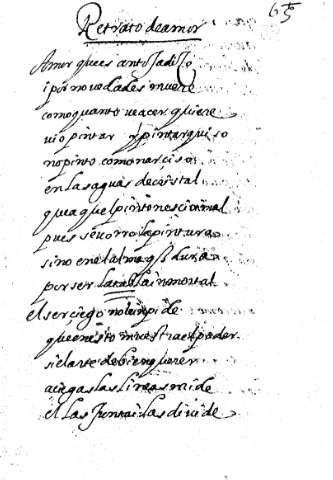 65
Retrato de amor
Amor que es antojadiço
i por novedades muere
como quanto ve acer quiere
vio pintar y pintar quiso
no pinto como narciso
en las aguas de cristal
que aquel pinto necio i mal
pues se vorro la pintura
sino en el alma q̃ dura
por ser la tabla inmortal
el ser ciego no lo inpide
que en esto muestra el poder
si el arte de bien querer
a ciegas las lineas mide
el las junta i las divide